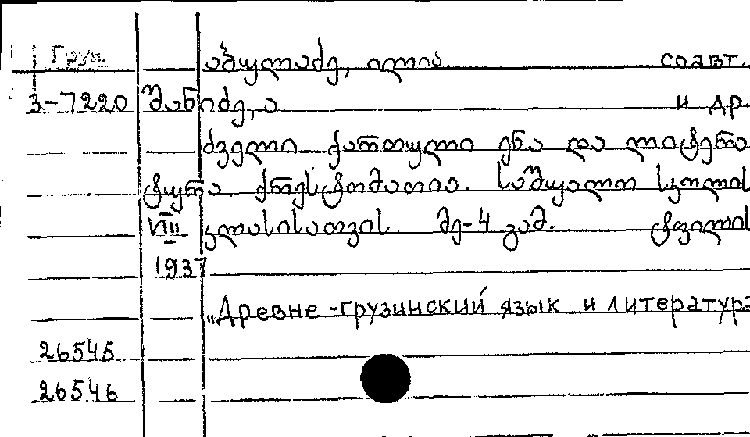 Груз. აბულაძე, ილია соавт.
3-7220 შანიძე, ა и др.
ძველი ქართული ენა და ლიტერა
ტურა ქრესტომათია. საშუალო სკოლის
VIII კლასისათვის მე-4 გამ. ტფილის
1937
„Древне-грузинский язык и литература
26545
26546